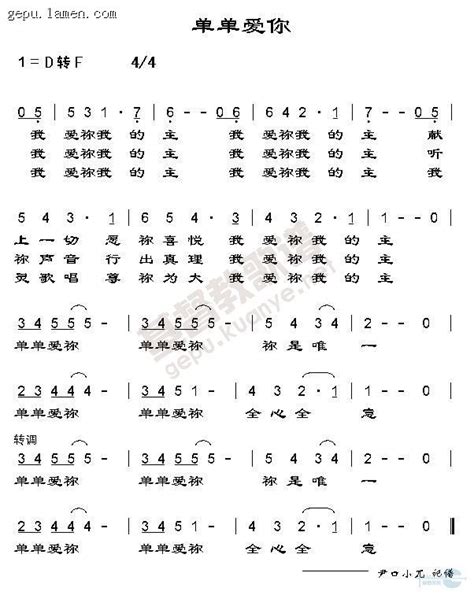 gepu.lamen.com
单单爱你
1=D转F 4/4
0 5 | 5 3 1 · 7 | 6 - - 0 6 | 6 4 2 · 1 | 7 - - 0 5 |
我 爱祢我的主 我 爱祢我的主 献
我 爱祢我的主 我 爱祢我的主 听
我 爱祢我的主 我 爱祢我的主 我
5 4 3 · 1 | 6 5 4 · 3 | 4 3 2 · 1 | 1 - - 0 |
上一切 忍 祢喜悦 我 爱祢我的主
祢声音 行 出真理 我 爱祢我的主
灵歌唱 尊 祢为大 我 爱祢我的主
3 4 5 5 5 - | 3 4 5 5 5 - | 5 4 3 4 | 2 - - 0 |
单单爱祢 单单爱祢 祢是唯 一
2 3 4 4 4 - | 3 4 5 1 - | 4 3 2 · 1 | 1 - - 0 |
单单爱祢 单单爱祢 全心全 意
转调
3 4 5 5 5 - | 3 4 5 5 5 - | 5 4 3 4 | 2 - - 0 |
单单爱祢 单单爱祢 祢是唯 一
2 3 4 4 4 - | 3 4 5 1 - | 4 3 2 · 1 | 1 - - 0 |
单单爱祢 单单爱祢 全心全 意
尹口小兀 记谱
基督教歌谱
gepu.kuanye.net